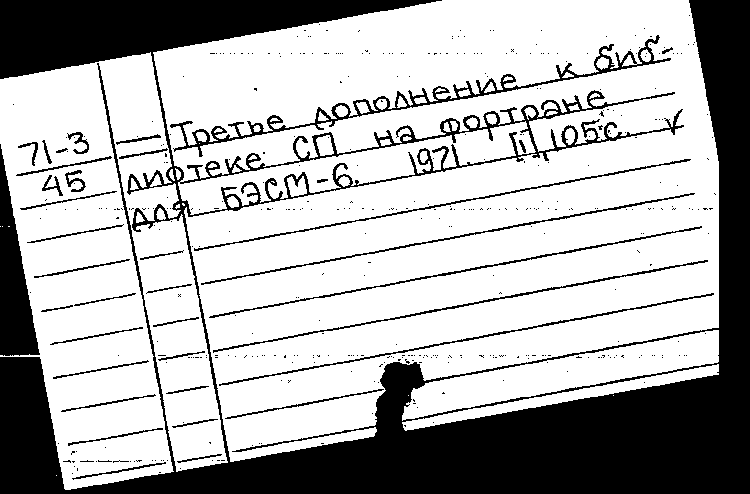 71-3
45
— Третье дополнение к биб-
лиотеке СП на фортране
для БЭСМ-6. 1971. [1], 105 с. V